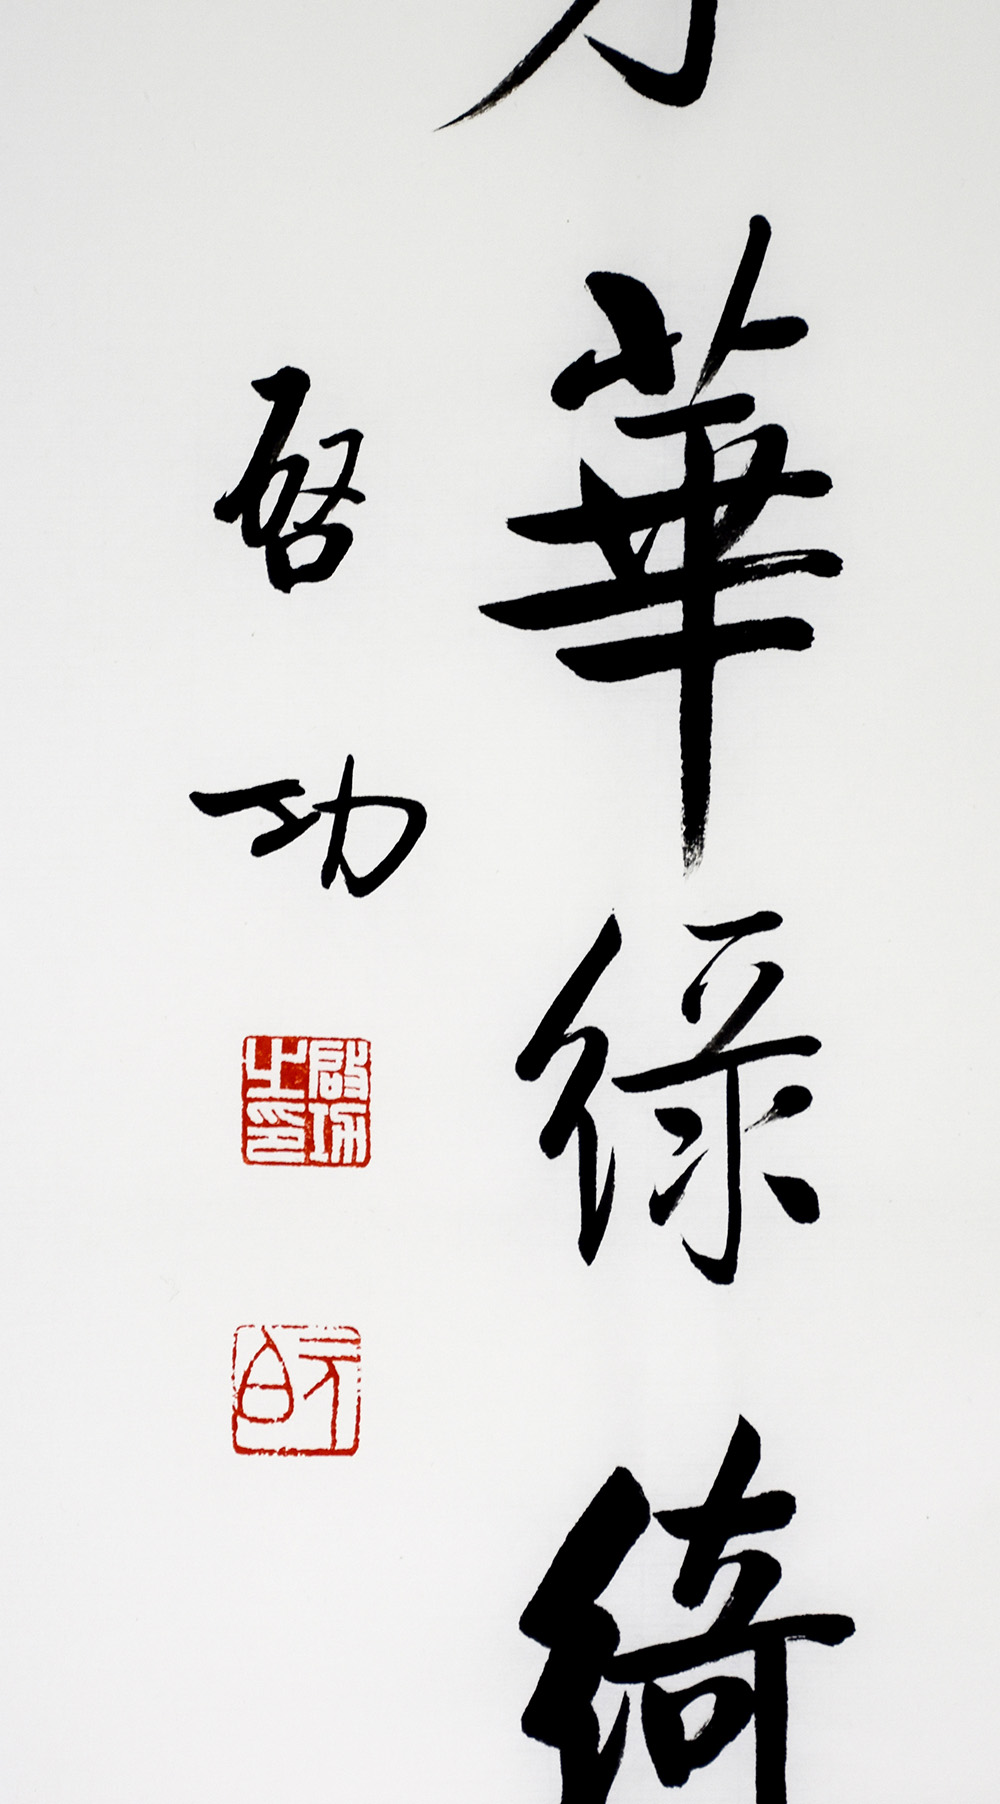 華綠綺
啓功
啟功之印
元白